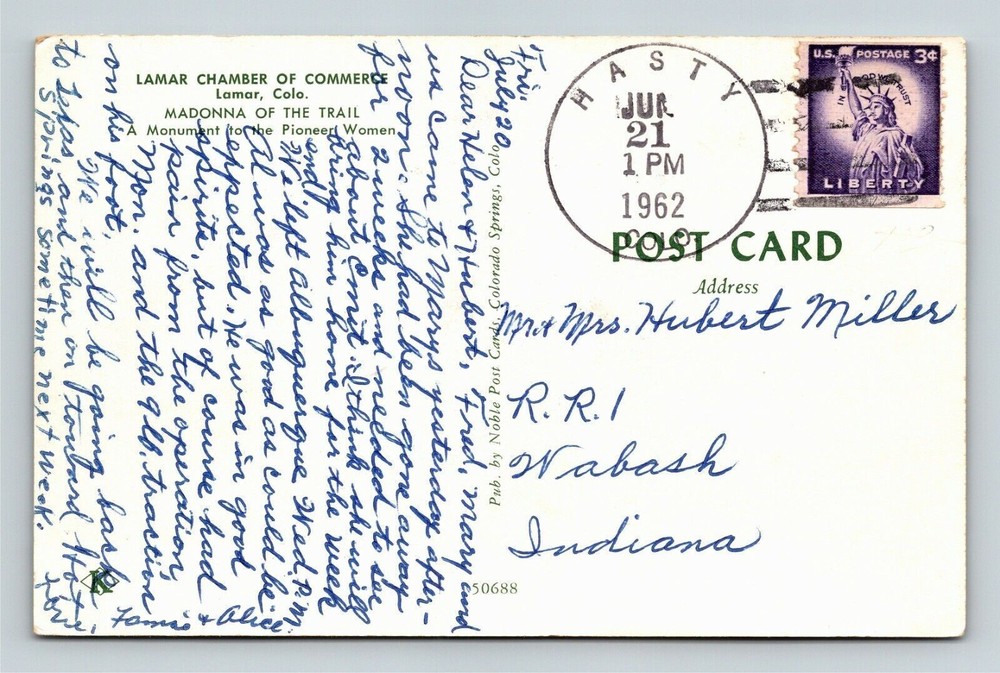 LAMAR CHAMBER OF COMMERCE
Lamar, Colo.
MADONNA OF THE TRAIL
A Monument to the Pioneer Women
Fri.
July 20
Dear Helen & Hubert, Fred, Mary and
us came to Marys yesterday after-
noon. She had been gone away
for 2 weeks and needed to see
about Emit. I think she will
bring him home for the week
end.
We left Albuquerque Wed. P.M.
Al was as good as could be
expected. He was in good
spirits, but of course had
pain from the operation
Mon. and the 9 lb. traction
on his foot.
We will be going back
to and then on toward Hot
Springs sometime next week.
Love, & Alice
Pub. by Noble Post Cards, Colorado Springs, Colo.
K
50688
HASTY
JUL
21
1 PM
1962
COLO
U.S. POSTAGE 3¢
IN GOD WE TRUST
LIBERTY
POST CARD
Address
Mr. & Mrs. Hubert Miller
R. R. 1
Wabash
Indiana